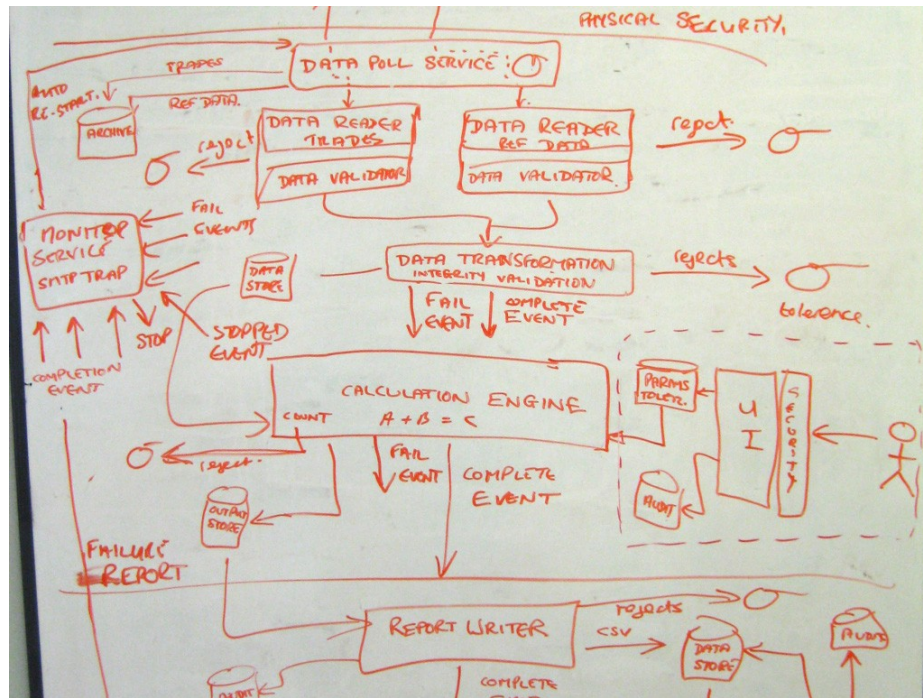 PHYSICAL SECURITY,
DATA POLL SERVICE
TRADES
AUTO
RE-START.
REF DATA.
ARCHIVE
DATA READER
TRADES
DATA VALIDATOR
reject
DATA READER
REF DATA
DATA VALIDATOR
reject.
MONITOR
SERVICE
FAIL
EVENTS
DATA
STORE
DATA TRANSFORMATION
INTEGRITY VALIDATION
rejects
tolerence.
FAIL
EVENT
COMPLETE
EVENT
STOP
STOPPED
EVENT
COMPLETION
EVENT
CALCULATION ENGINE
A + B = C
COUNT
PARAMS
TOLER.
UI
SECURITY
AUDIT
reject.
FAIL
EVENT
COMPLETE
EVENT
OUTPUT
STORE
FAILURE
REPORT
REPORT WRITER
rejects
CSV
DATA
STORE
AUDIT
AUDIT
COMPLETE